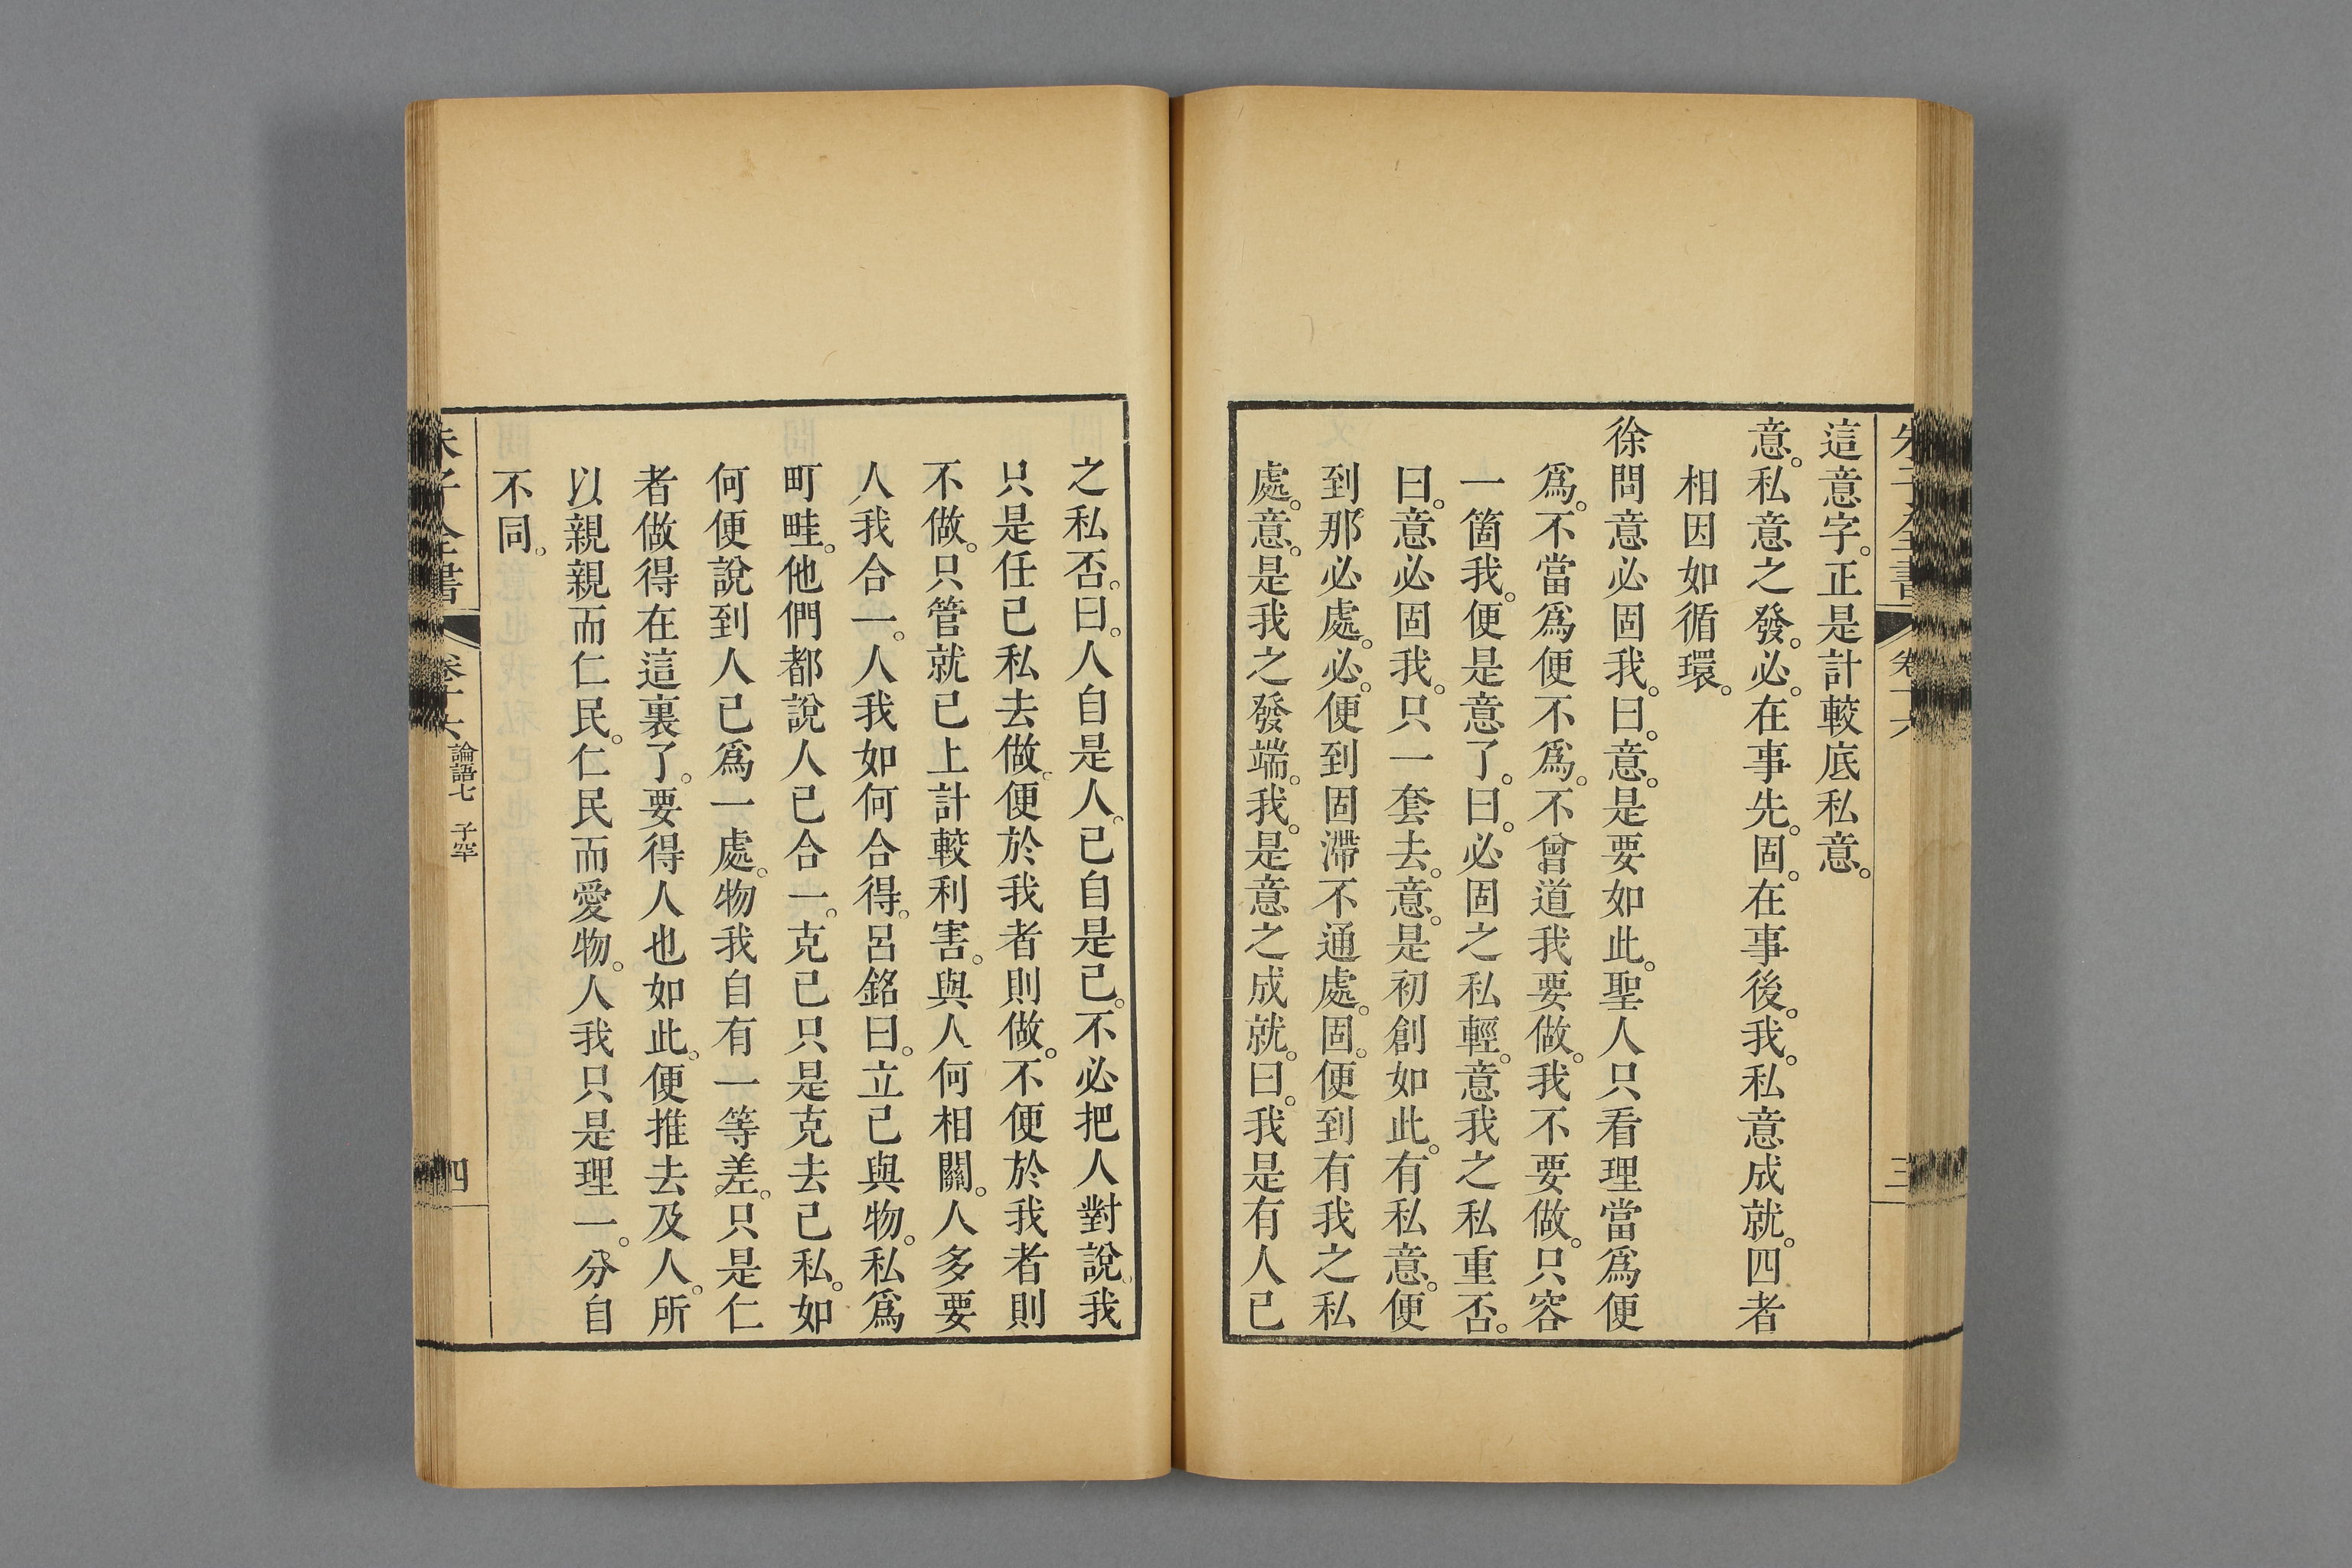 朱子全書 卷十六 三
這意字。正是計較底私意。
意。私意之發。必。在事先。固。在事後。我。私意成就。四者
相因如循環。
徐問意必固我。曰。意。是要如此。聖人只看理當爲便
爲。不當爲便不爲。不曾道我要做。我不要做。只容
一箇我。便是意了。曰。必固之私輕。意我之私重否。
曰。意必固我。只一套去。意。是初創如此。有私意。便
到那必處。必。便到固滯不通處。固。便到有我之私
處。意。是我之發端。我。是意之成就。曰。我是有人已
之私否。曰。人自是人。已自是己。不必把人對說。我
只是任已私去做。便於我者則做。不便於我者則
不做。只管就已上計較利害。與人何相關。人多要
人我合一。人我如何合得。呂銘曰。立己與物。私爲
町畦。他們都說人已合一。克己只是克去己私。如
何便說到人已爲一處。物我自有一等差。只是仁
者做得在這裏了。要得人也如此。便推去及人。所
以親親而仁民。仁民而愛物。人我只是理一。分自
不同。
朱子全書 卷十六 論語七 子罕 四